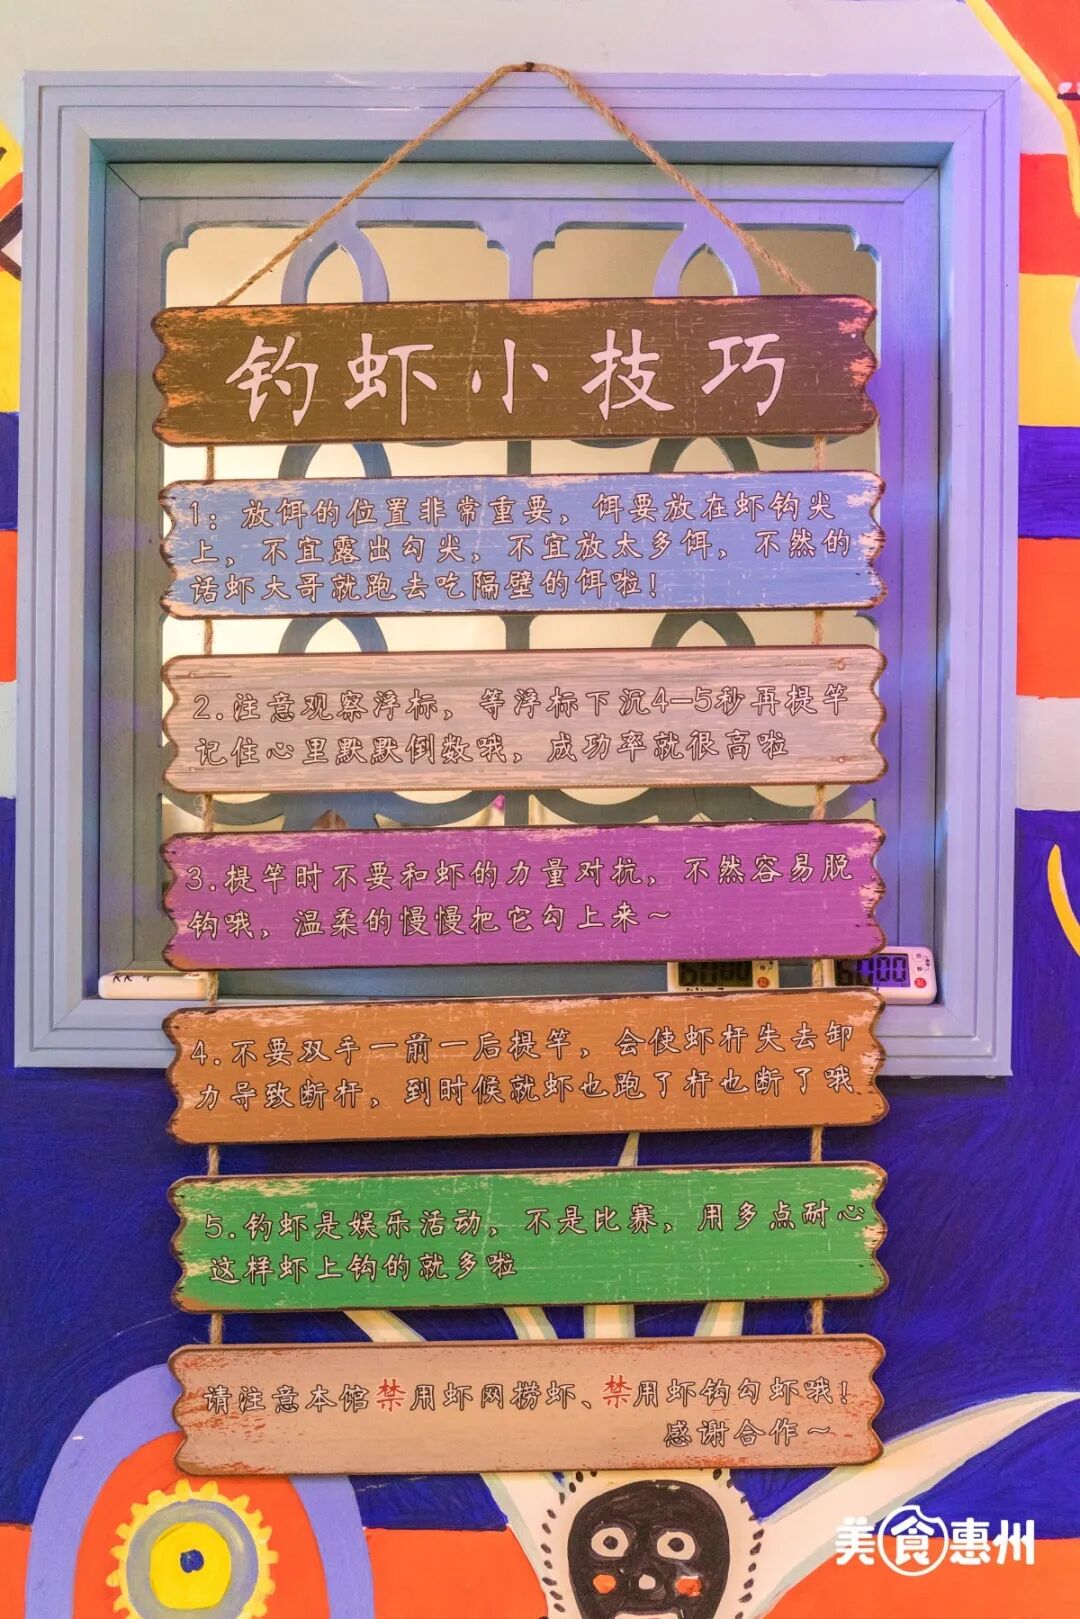 钓虾小技巧
1：放饵的位置非常重要，饵要放在虾钩尖
上，不宜露出勾尖，不宜放太多饵，不然的
话虾大哥就跑去吃隔壁的饵啦！
2.注意观察浮标，等浮标下沉4-5秒再提竿
记住心里默默倒数哦，成功率就很高啦
3.提竿时不要和虾的力量对抗，不然容易脱
钩哦，温柔的慢慢把它勾上来~
4.不要双手一前一后提竿，会使虾杆失去卸
力导致断杆，到时候就虾也跑了杆也断了哦
5.钓虾是娱乐活动，不是比赛，用多点耐心
这样虾上钩的就多啦
请注意本馆禁用虾网捞虾、禁用虾钩勾虾哦！
感谢合作~
美食惠州